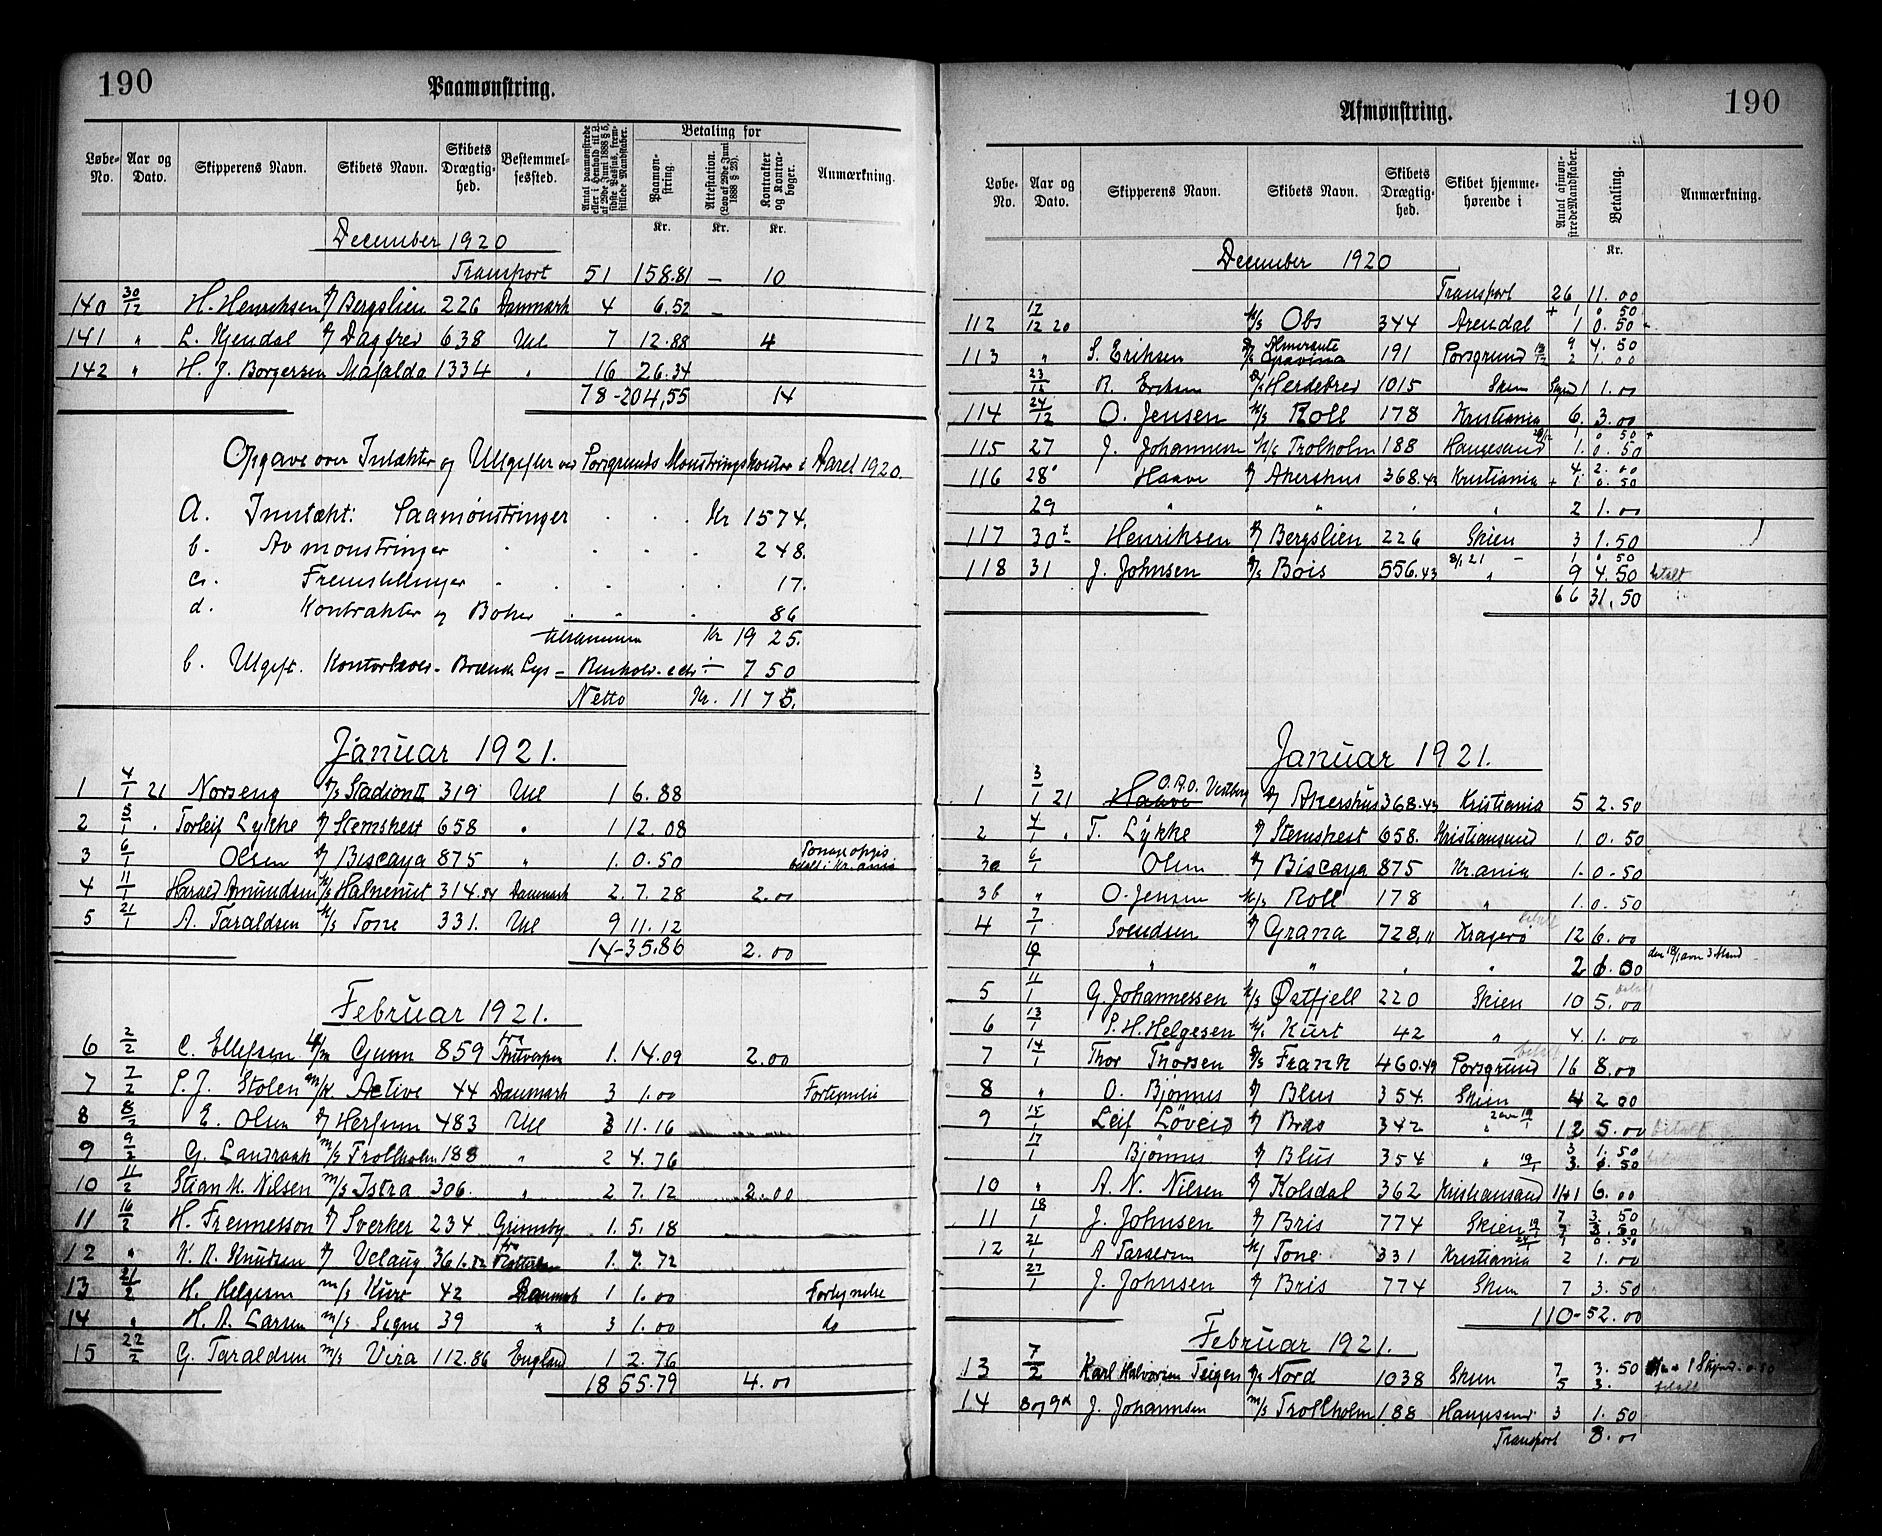 190
Paamønstring.
Løbe-No. Aar og Dato. Skipperens Navn. Skibets Navn. Skibets Drægtighed. Bestemmelsessted. Betaling for Paamønstring. Kr. Attestation. (Lov af 29de Juni 1888 § 23). Kr. Kontrakter og Kontrabøger. Kr. Anmærkning.
December 1920
Transport 51 158.81 — 10
140 30/12 H. Henriksen Bergslien 226 Danmark 4 6.52 —
141 " L. Kjendal Dagfred 638 Utl 7 12.88 4
142 " H. J. Borgersen Mafalda 1334 " 16 26.34
78 - 204,55 14
Opgave over Indtækter og Utgifter ved Porsgrunds Mønstringskontor i Aaret 1920.
a. Inntækt: Paamönstringer Kr 1574.
b. Avmonstringer 248.
c. Fremstillinger 17.
d. Kontrakter og Bøker 86
tilsammen Kr 1925.
b. Utgift. Kontorhold - Brænde Lys - Renhold. etc ÷ 750
Netto Kr. 1175.
Januar 1921.
1 4/1 21 Norseng Stadion II 319 Utl 1 6.88
2 5/1 Torleif Lykke Stemshest 658 " 1 12.08
3 6/1 Olsen Biscaya 875 " 1. 0.50
4 11/1 Harald Amundsen Halnenut 314.54 Danmark 2. 7.28 2.00
5 21/1 A. Taraldsen M/s Tone 331. Utl 9 11.12
14 - 35.86 2.00
Februar 1921.
6 2/2 C. Ellefsen Gunn 859 Antverpen 1. 14.09 2.00
7 7/2 P. J. Stolen Active 44 Danmark 3 1.00 Fortynelse
8 8/2 E. Olsen Herfinn 483 Utl 3 11.16
9 9/2 G. Landraak M/s Trollholm 188 " 2 4.76
10 11/2 Stian M. Nilsen M/s Istra 306 " 2 7.12 2.00
11 16/2 H. Fremmesson Sverker 234 Grimsby 1. 5.18
12 " K. A. Knudsen Velaug 361.82 1. 7.72
13 21/2 H. Helgesen M/s Kurt 42 Danmark 1 1.00 Fortynelse
14 " H. A. Larsen M/s Signe 39 " 3 1.00 do
15 22/2 G. Taraldsen M/s Vira 112.86 England 1 2.76
18 55.79 4.00
190
Afmønstring.
Løbe-No. Aar og Dato. Skipperens Navn. Skibets Navn. Skibets Drægtighed. Skibet hjemmehørende i Antal afmønstrede Mandskaber. Betaling. Kr. Anmærkning.
December 1920
Transport 26 11.00
+ 1 0 50
112 17/12 20 M/s Obs 344 Arendal 1 0.50
113 " S. Eriksen Almirante Gravina 191 Porsgrund 9 4.50 2 1.00
23/12 R. Eriksen Herdebred 1015 Skien 1 1.00
114 24/12 O. Jensen M/s Roll 178 Kristiania 6. 3.00
115 27 J. Johannesen Trolholm 188 Haugesund 1. 0 50 1. 0.50
116 28 Haave Akershus 368.43 Kristiania 4. 2.00 + 1 0.50
29 " " " " 2 1.00
117 30t Henriksen Bergslien 226 Skien 3 1.50
118 31 J. Johnsen Bois 556.43 8/1 21 " 1 0 50 9 4.50 betalt
66 31.50
Januar 1921.
1 3/1 21 Haave O.A.O. Vestberg Akershus 368.43 Kristiania 5 2.50
2 4/1 T. Lykke Stemshest 658. Kristiansund 1. 0.50
3a 6/1 Olsen Biscaya 875 Kr.ania 1. 0.50
3b " O. Jensen M/s Roll 178 " 1. 0.50
4 7/1 Svendsen Grana 728.11 Kragerø 12 6.00 betalt
" " " " 2
5 11/1 G. Johannessen M/s Østfjell 220 Skien 10 5.00 betalt
6 13/1 P. H. Helgesen Kurt 42 " 4. 1.00
7 14/1 Thor Thorsen Frank 460.49 Porsgrund 16 8.00 betalt
8 " O. Bjønnes Blus 354 Skien 4 2.00
9 15/1 Leif Løveid Bras 342 " 12 5.00 betalt
17/1 Bjønnes Blus 354 " 19/1 3 1.50
10 " A. N. Nilsen Kolsdal 362 Kristiansand 6.00
11 18/1 J. Johnsen Bris 774 Skien 7 3.50
12 21/1 A Taraldsen Tone 331 Kristiania 2 1.00
27/1 J. Johnsen Bris 774 Skien 7 3.50
110 - 52.00
Februar 1921.
13 7/2 Karl Halvorsen Teigen Nord 1038 Skien 7 3.50 5 3. betalt
14 8 og 9d J. Johannsen M/s Trollholm 188 Haugesund 3 1.50
Transport 8.00